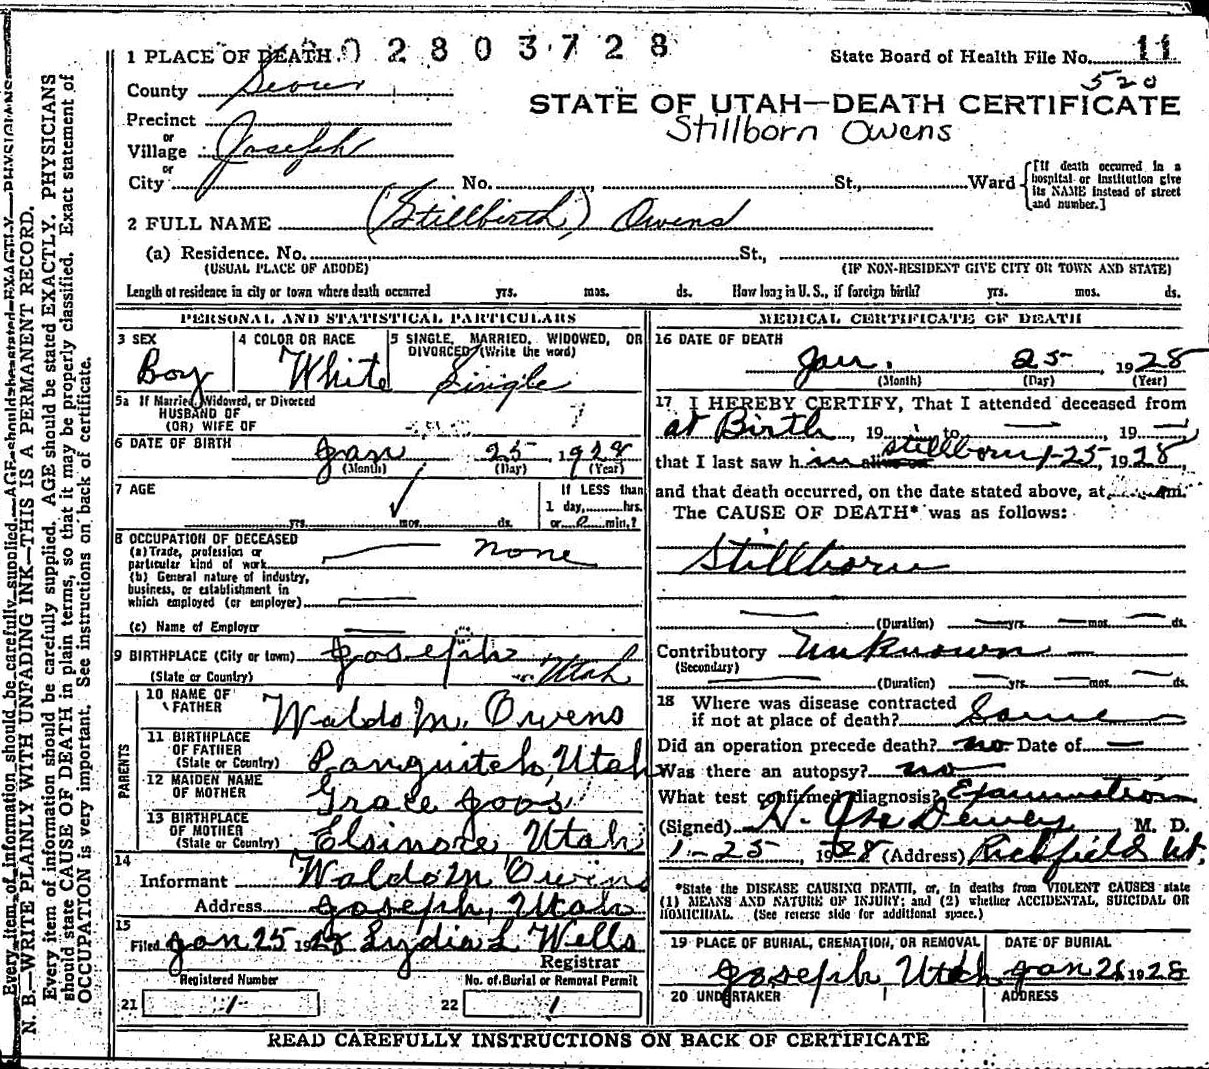 1 PLACE OF DEATH 0 2 8 0 3 7 2 8 State Board of Health File No. 11
520
County Sevier
STATE OF UTAH—DEATH CERTIFICATE
Stillborn Owens
Precinct
or
Village Joseph
or
City No. , St., Ward
[If death occurred in a
hospital or institution give
its NAME instead of street
and number.]
2 FULL NAME (Stillbirth) Owens
(a) Residence. No. St.,
(USUAL PLACE OF ABODE) (IF NON-RESIDENT GIVE CITY OR TOWN AND STATE)
Length of residence in city or town where death occurred yrs. mos. ds. How long in U. S., if foreign birth? yrs. mos. ds.
PERSONAL AND STATISTICAL PARTICULARS
3 SEX
Boy
4 COLOR OR RACE
White
5 SINGLE, MARRIED, WIDOWED, OR
DIVORCED (Write the word)
Single
5a If Married, Widowed, or Divorced
HUSBAND OF
(OR) WIFE OF
6 DATE OF BIRTH Jan 25, 1928
(Month) (Day) (Year)
7 AGE
yrs. mos. ds.
If LESS than
1 day, hrs.
or min.?
8 OCCUPATION OF DECEASED
(a) Trade, profession or
particular kind of work none
(b) General nature of industry,
business, or establishment in
which employed (or employer)
(c) Name of Employer
9 BIRTHPLACE (City or town) Joseph
(State or Country) Utah
PARENTS
10 NAME OF
FATHER Waldo M. Owens
11 BIRTHPLACE
OF FATHER
(State or Country) Panguitch, Utah
12 MAIDEN NAME
OF MOTHER Grace Joos
13 BIRTHPLACE
OF MOTHER
(State or Country) Elsinore, Utah
14
Informant Waldo M Owens
Address Joseph, Utah
15
Filed Jan 25 1928 Lydia L Wells
Registrar
Registered Number No. of Burial or Removal Permit
21 1 22 1
MEDICAL CERTIFICATE OF DEATH
16 DATE OF DEATH
Jan. 25 1928
(Month) (Day) (Year)
17 I HEREBY CERTIFY, That I attended deceased from
at Birth, 19 — to —, 19 —
that I last saw h im stillborn 1-25, 1928,
and that death occurred, on the date stated above, at m.
The CAUSE OF DEATH* was as follows:
Stillborn
(Duration) yrs. mos. ds.
Contributory Unknown
(Secondary)
(Duration) yrs. mos. ds.
18 Where was disease contracted
if not at place of death? Same
Did an operation precede death? no Date of —
Was there an autopsy? no
What test confirmed diagnosis? Examination
(Signed) H. Dewey M. D.
1-25, 1928 (Address) Richfield Ut.
*State the DISEASE CAUSING DEATH, or, in deaths from VIOLENT CAUSES state
(1) MEANS AND NATURE OF INJURY; and (2) whether ACCIDENTAL, SUICIDAL OR
HOMICIDAL. (See reverse side for additional space.)
19 PLACE OF BURIAL, CREMATION, OR REMOVAL DATE OF BURIAL
Joseph Utah Jan 26 1928
20 UNDERTAKER ADDRESS
READ CAREFULLY INSTRUCTIONS ON BACK OF CERTIFICATE
N. B.—WRITE PLAINLY WITH UNFADING INK—THIS IS A PERMANENT RECORD.
Every item of information should be carefully supplied. AGE should be stated EXACTLY. PHYSICIANS
should state CAUSE OF DEATH in plain terms, so that it may be properly classified. Exact statement of
OCCUPATION is very important. See instructions on back of certificate.